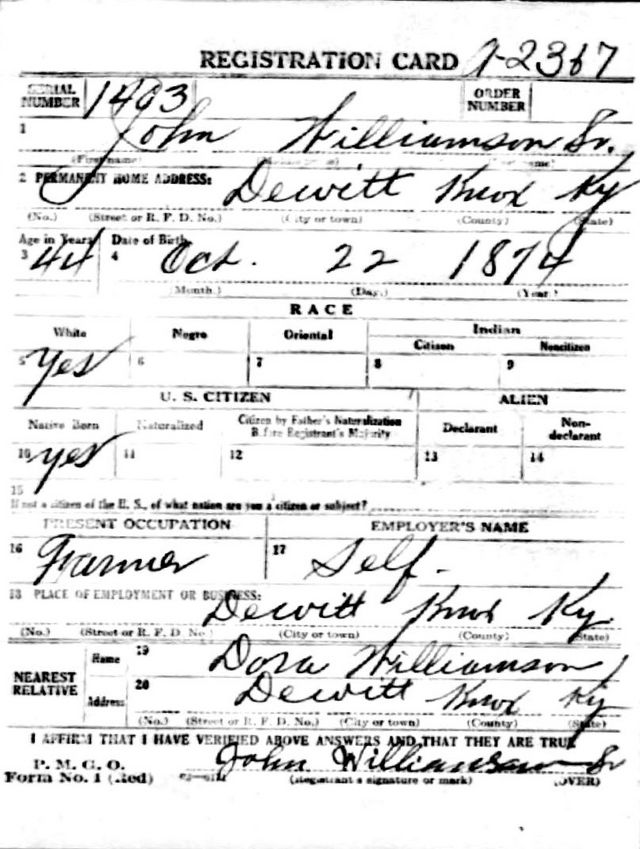 REGISTRATION CARD A-2367
SERIAL NUMBER 1403 ORDER NUMBER
1 John Williamson Sr.
(First name) (Middle name) (Last name)
2 PERMANENT HOME ADDRESS: Dewitt Knox Ky
(No.) (Street or R. F. D. No.) (City or town) (County) (State)
Age in Years Date of Birth
3 44 4 Oct. 22 1874
(Month.) (Day.) (Year)
RACE
White Negro Oriental Indian
Citizen Noncitizen
5 Yes 6 7 8 9
U. S. CITIZEN ALIEN
Native Born Naturalized Citizen by Father's Naturalization Before Registrant's Majority Declarant Non-declarant
10 yes 11 12 13 14
15
If not a citizen of the U. S., of what nation are you a citizen or subject?
PRESENT OCCUPATION EMPLOYER'S NAME
16 Farmer 17 Self-
18 PLACE OF EMPLOYMENT OR BUSINESS: Dewitt Knox Ky.
(No.) (Street or R. F. D. No.) (City or town) (County) (State)
NEAREST RELATIVE Name 19 Dora Williamson
Address 20 Dewitt Knox Ky
(No.) (Street or R. F. D. No.) (City or town) (County) (State)
I AFFIRM THAT I HAVE VERIFIED ABOVE ANSWERS AND THAT THEY ARE TRUE
P. M. G. O.
Form No. 1 (Red) John Williamson Sr
(Registrant's signature or mark) (OVER)